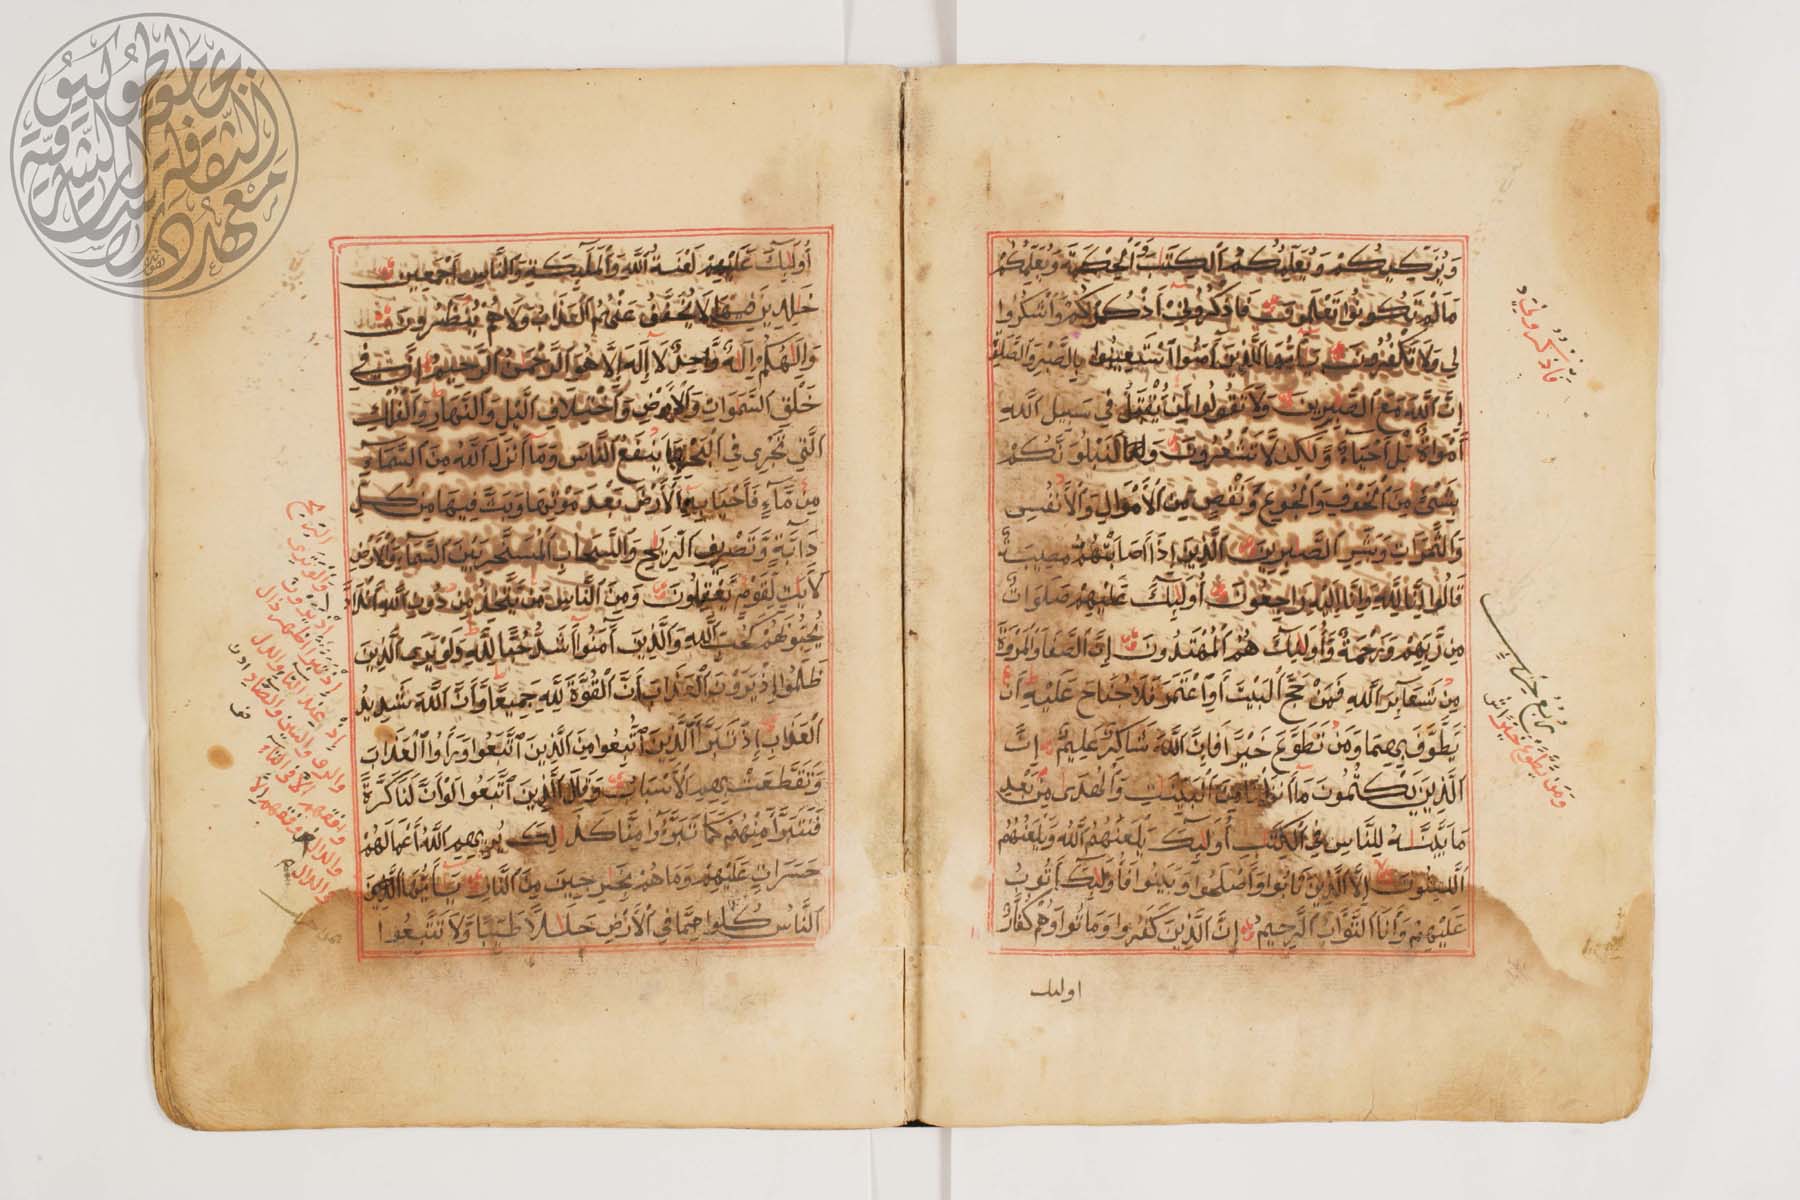 وَيُزَكِّيكُمْ وَيُعَلِّمُكُمُ الْكِتَٰبَ وَالْحِكْمَةَ وَيُعَلِّمُكُمْ
مَا لَمْ تَكُونُوا تَعْلَمُونَ فَاذْكُرُونِي أَذْكُرْكُمْ وَاشْكُرُوا
لِي وَلَا تَكْفُرُونَ يَٰأَيُّهَا الَّذِينَ آمَنُوا اسْتَعِينُوا بِالصَّبْرِ وَالصَّلَوٰةِ
إِنَّ اللَّهَ مَعَ الصَّٰبِرِينَ وَلَا تَقُولُوا لِمَنْ يُقْتَلُ فِي سَبِيلِ اللَّهِ
أَمْوَاتٌ بَلْ أَحْيَاءٌ وَلَٰكِنْ لَّا تَشْعُرُونَ وَلَنَبْلُوَنَّكُمْ
بِشَيْءٍ مِنَ الْخَوْفِ وَالْجُوعِ وَنَقْصٍ مِنَ الْأَمْوَالِ وَالْأَنْفُسِ
وَالثَّمَرَاتِ وَبَشِّرِ الصَّٰبِرِينَ الَّذِينَ إِذَا أَصَابَتْهُمْ مُصِيبَةٌ
قَالُوا إِنَّا لِلَّهِ وَإِنَّا إِلَيْهِ رَاجِعُونَ أُولَٰئِكَ عَلَيْهِمْ صَلَوَاتٌ
مِنْ رَبِّهِمْ وَرَحْمَةٌ وَأُولَٰئِكَ هُمُ الْمُهْتَدُونَ إِنَّ الصَّفَا وَالْمَرْوَةَ
مِنْ شَعَائِرِ اللَّهِ فَمَنْ حَجَّ الْبَيْتَ أَوِ اعْتَمَرَ فَلَا جُنَاحَ عَلَيْهِ أَنْ
يَطَّوَّفَ بِهِمَا وَمَنْ تَطَوَّعَ خَيْرًا فَإِنَّ اللَّهَ شَاكِرٌ عَلِيمٌ إِنَّ
الَّذِينَ يَكْتُمُونَ مَا أَنْزَلْنَا مِنَ الْبَيِّنَٰتِ وَالْهُدَىٰ مِنْ بَعْدِ
مَا بَيَّنَّٰهُ لِلنَّاسِ فِي الْكِتَٰبِ أُولَٰئِكَ يَلْعَنُهُمُ اللَّهُ وَيَلْعَنُهُمُ
اللَّٰعِنُونَ إِلَّا الَّذِينَ تَابُوا وَأَصْلَحُوا وَبَيَّنُوا فَأُولَٰئِكَ أَتُوبُ
عَلَيْهِمْ وَأَنَا التَّوَّابُ الرَّحِيمُ إِنَّ الَّذِينَ كَفَرُوا وَمَاتُوا وَهُمْ كُفَّارٌ
اولىك
فاذكروني
ومن يطوع
أُولَٰئِكَ عَلَيْهِمْ لَعْنَةُ اللَّهِ وَالْمَلَٰئِكَةِ وَالنَّاسِ أَجْمَعِينَ
خَٰلِدِينَ فِيهَا لَا يُخَفَّفُ عَنْهُمُ الْعَذَابُ وَلَا هُمْ يُنْظَرُونَ
وَإِلَٰهُكُمْ إِلَٰهٌ وَاحِدٌ لَا إِلَٰهَ إِلَّا هُوَ الرَّحْمَٰنُ الرَّحِيمُ إِنَّ فِي
خَلْقِ السَّمَوَاتِ وَالْأَرْضِ وَاخْتِلَافِ الَّيْلِ وَالنَّهَارِ وَالْفُلْكِ
الَّتِي تَجْرِي فِي الْبَحْرِ بِمَا يَنْفَعُ النَّاسَ وَمَا أَنْزَلَ اللَّهُ مِنَ السَّمَاءِ
مِنْ مَّاءٍ فَأَحْيَا بِهِ الْأَرْضَ بَعْدَ مَوْتِهَا وَبَثَّ فِيهَا مِنْ كُلِّ
دَابَّةٍ وَتَصْرِيفِ الرِّيَٰحِ وَالسَّحَابِ الْمُسَخَّرِ بَيْنَ السَّمَاءِ وَالْأَرْضِ
لَآيَٰتٍ لِقَوْمٍ يَعْقِلُونَ وَمِنَ النَّاسِ مَنْ يَتَّخِذُ مِنْ دُونِ اللَّهِ أَنْدَادًا
يُحِبُّونَهُمْ كَحُبِّ اللَّهِ وَالَّذِينَ آمَنُوا أَشَدُّ حُبًّا لِلَّهِ وَلَوْ يَرَى الَّذِينَ
ظَلَمُوا إِذْ يَرَوْنَ الْعَذَابَ أَنَّ الْقُوَّةَ لِلَّهِ جَمِيعًا وَأَنَّ اللَّهَ شَدِيدُ
الْعَذَابِ إِذْ تَبَرَّأَ الَّذِينَ اتُّبِعُوا مِنَ الَّذِينَ اتَّبَعُوا وَرَأَوُا الْعَذَابَ
وَتَقَطَّعَتْ بِهِمُ الْأَسْبَابُ وَقَالَ الَّذِينَ اتَّبَعُوا لَوْ أَنَّ لَنَا كَرَّةً
فَنَتَبَرَّأَ مِنْهُمْ كَمَا تَبَرَّءُوا مِنَّا كَذَٰلِكَ يُرِيهِمُ اللَّهُ أَعْمَالَهُمْ
حَسَرَاتٍ عَلَيْهِمْ وَمَا هُمْ بِخَٰرِجِينَ مِنَ النَّارِ يَٰأَيُّهَا
النَّاسُ كُلُوا مِمَّا فِي الْأَرْضِ حَلَٰلًا طَيِّبًا وَلَا تَتَّبِعُوا
معهد الثقافة والدراسات الشرقية
جامعة طوكيو